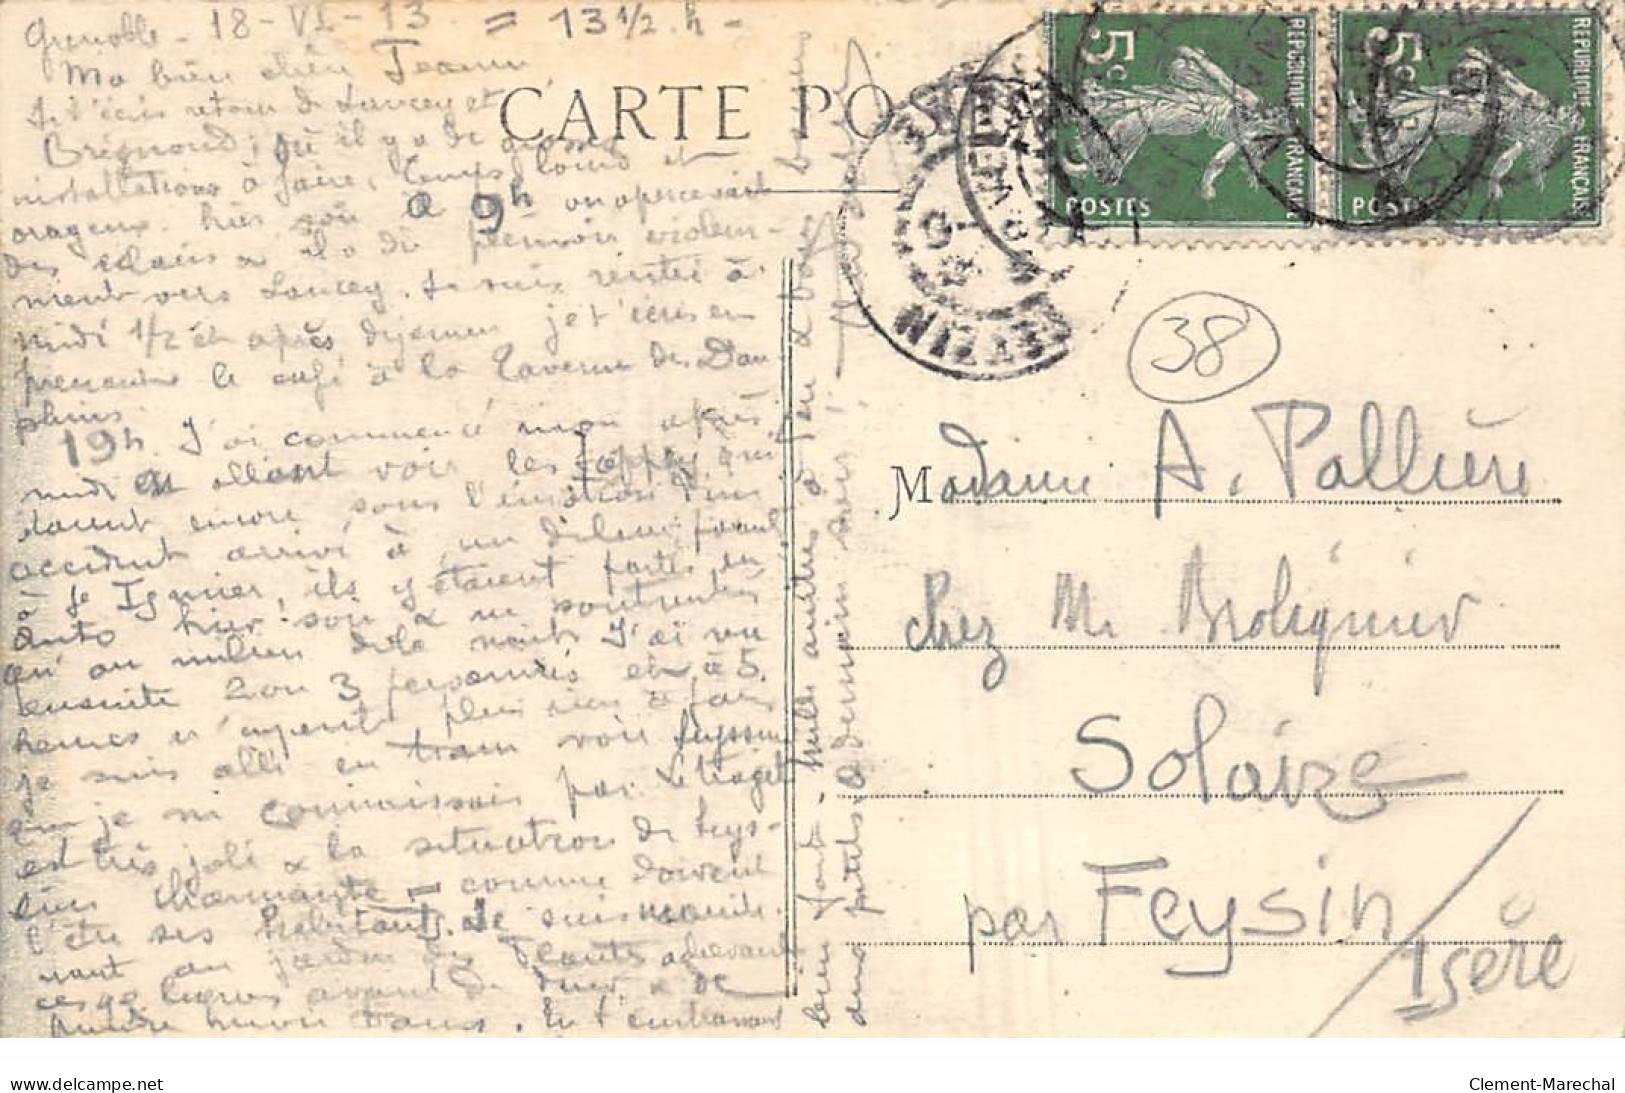 Grenoble - 18 - VI - 13 = 13 1/2 h -
Ma bien chère Jeanne,
Je t'écris retour de Lancey et
Brignoud, où il y a de grosses
installations à faire, temps lourd et
orageux. hier soir à 9h on apercevait
des éclairs & il a dû pleuvoir violem-
ment vers Lancey. Je suis rentré à
midi 1/2 et après déjeuner je t'écris en
prenant le café à la Taverne des Dau-
phins.
19h. J'ai commencé mon après
midi en allant voir les qui
étaient encore sous l'émotion d'un
accident arrivé à un
à St Ismier, ils y étaient partis en
auto hier soir & ne sont rentrés
qu'au milieu de la nuit. J'ai vu
ensuite 2 ou 3 personnes et à 5
heures n'ayant plus rien à faire
je suis allé en tram voir Seyssins
que je ne connaissais pas. Le trajet
est très joli & la situation de Seys-
sins charmante - comme doivent
l'être ses habitants. Je suis mainte-
nant au jardin des Plantes achevant
ces lignes avant de dîner & de
prendre mon train. En t'embrassant
bien fort - mille amitiés à Père & bons baisers aux
petits. À demain soir!
CARTE POS
RÉPUBLIQUE FRANÇAISE
5c
POSTES
RÉPUBLIQUE FRANÇAISE
5c
POSTES
FEYZIN
38
Madame A. Pallière
chez M.
Solaize
par Feysin
Isère
www.delcampe.net
Clement-Marechal